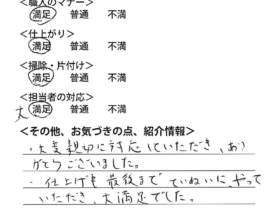 <職人のマナー>
満足 普通 不満
<仕上がり>
満足 普通 不満
<掃除・片付け>
満足 普通 不満
<担当者の対応>
大 満足 普通 不満
<その他、お気づきの点、紹介情報>
・大変親切に対応していただき、あり
がとうございました。
・仕上げも最後までていねいにやって
いただき、大満足でした。